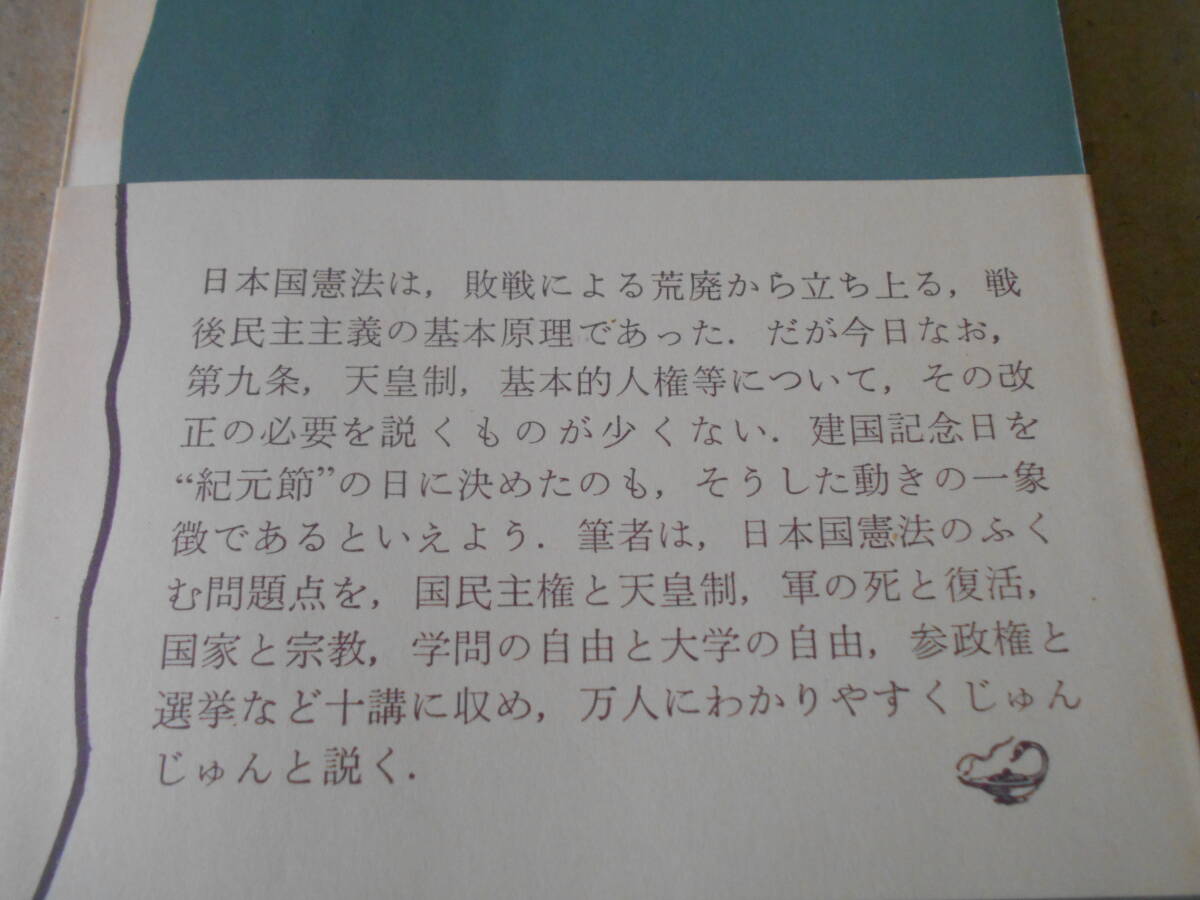 日本国憲法は，敗戦による荒廃から立ち上る，戦
後民主主義の基本原理であった．だが今日なお，
第九条，天皇制，基本的人権等について，その改
正の必要を説くものが少くない．建国記念日を
“紀元節”の日に決めたのも，そうした動きの一象
徴であるといえよう．筆者は，日本国憲法のふく
む問題点を，国民主権と天皇制，軍の死と復活，
国家と宗教，学問の自由と大学の自由，参政権と
選挙など十講に収め，万人にわかりやすくじゅん
じゅんと説く．